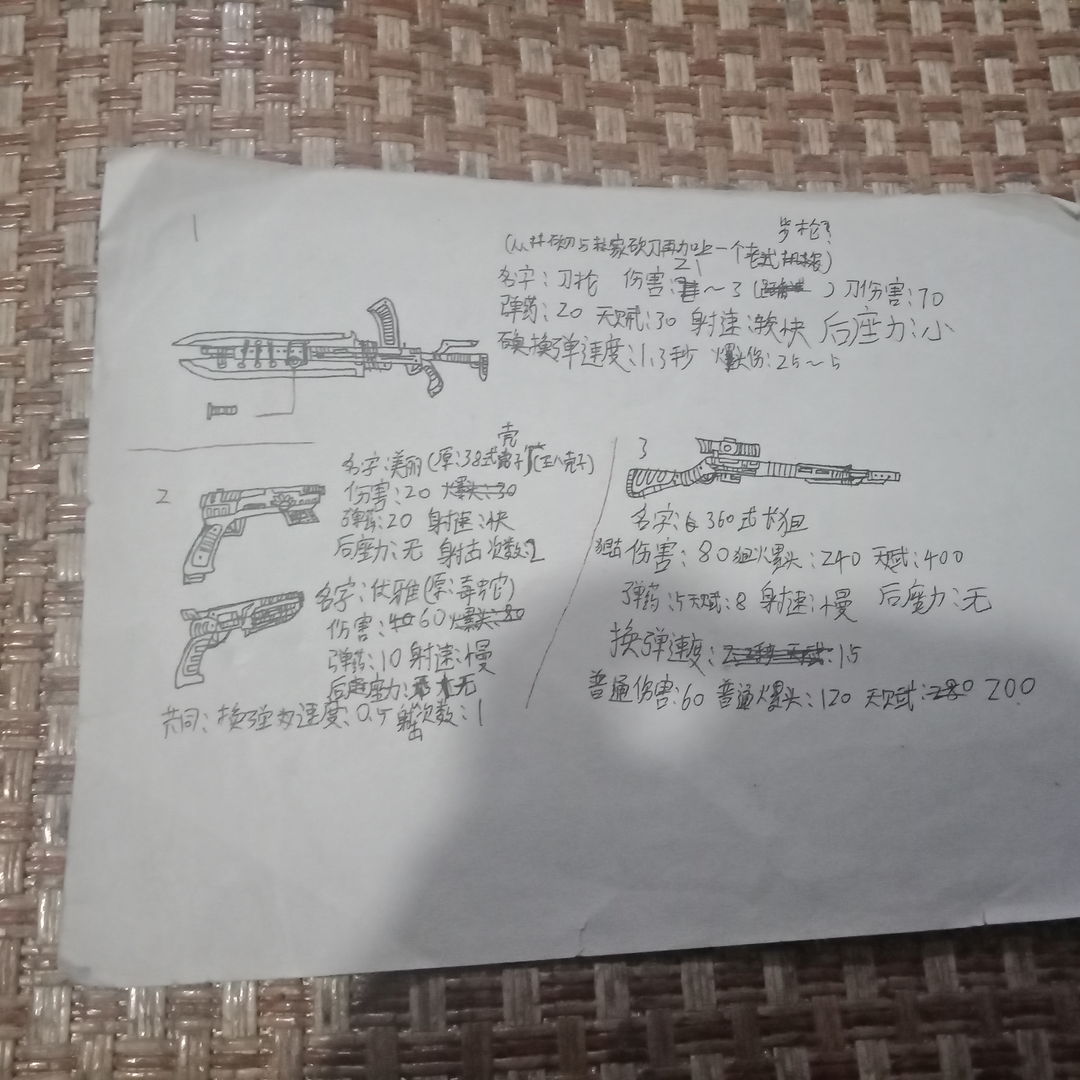 1
步枪
砍刀再加上一个老式
名字：刀枪 伤害：21～3（ ）刀伤害：70
弹药：20 天赋：30 射速：较快 后座力：小
换弹速度：1.3秒 爆头伤：25～5
2
壳
名字：美丽（原：38式 子）（王八壳子）
伤害：20 爆头：30
弹药：20 射速：快
后座力：无 射击次数：2
名字：优雅（原：毒蛇）
伤害：60 爆头：80
弹药：10 射速：慢
后座力：无
共同：换弹速度：0.5 射击次数：1
3
名字：360式大狙
狙击伤害：80 狙爆头：240 天赋：400
弹药：5 天赋：8 射速：慢 后座力：无
换弹速度：15
普通伤害：60 普通爆头：120 天赋：280 200